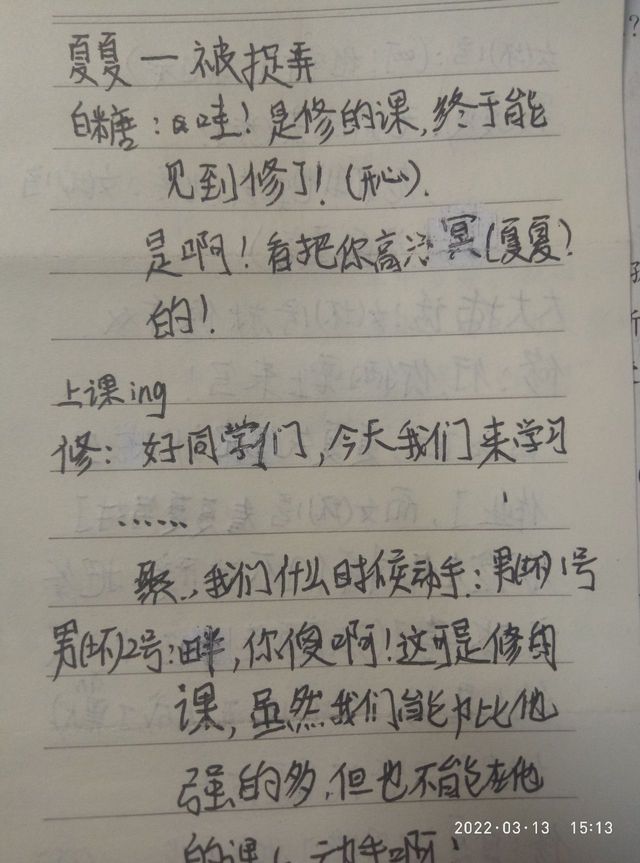 夏夏一被捉弄
白糖：哇！是修的课，终于能
见到修了！（开心）．
是啊！看把你高兴（夏夏）
的！
上课ing
修：好同学们，今天我们来学习
……
我们什么时候动手：男（坏）1号
男（坏）2号：，你傻啊！这可是修的
课，虽然我们能力比他
强的多，但也不能在他
的课上动手啊
2022·03·13 15:13